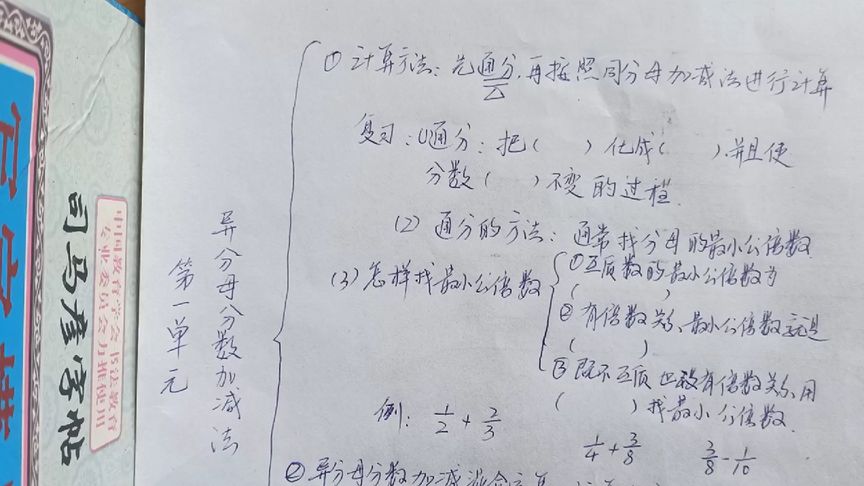 ①计算方法：先通分，再按照同分母加减法进行计算
复习：(1)通分：把（ ）化成（ ），并且使
分数（ ）不变的过程.
(2) 通分的方法：通常找分母的最小公倍数
(3) 怎样找最小公倍数
①互质数的最小公倍数为
（ ）
②有倍数关系，最小公倍数就是
（ ）
③既不互质也没有倍数关系，用
（ ）找最小公倍数.
例：1/2 + 2/3
1/4 + 3/8
3/8 - 1/10
②异分母分数加减混合
第一单元
异分母分数加减法
司马彦字帖
中国教育学会书法教育
专业委员会力推使用